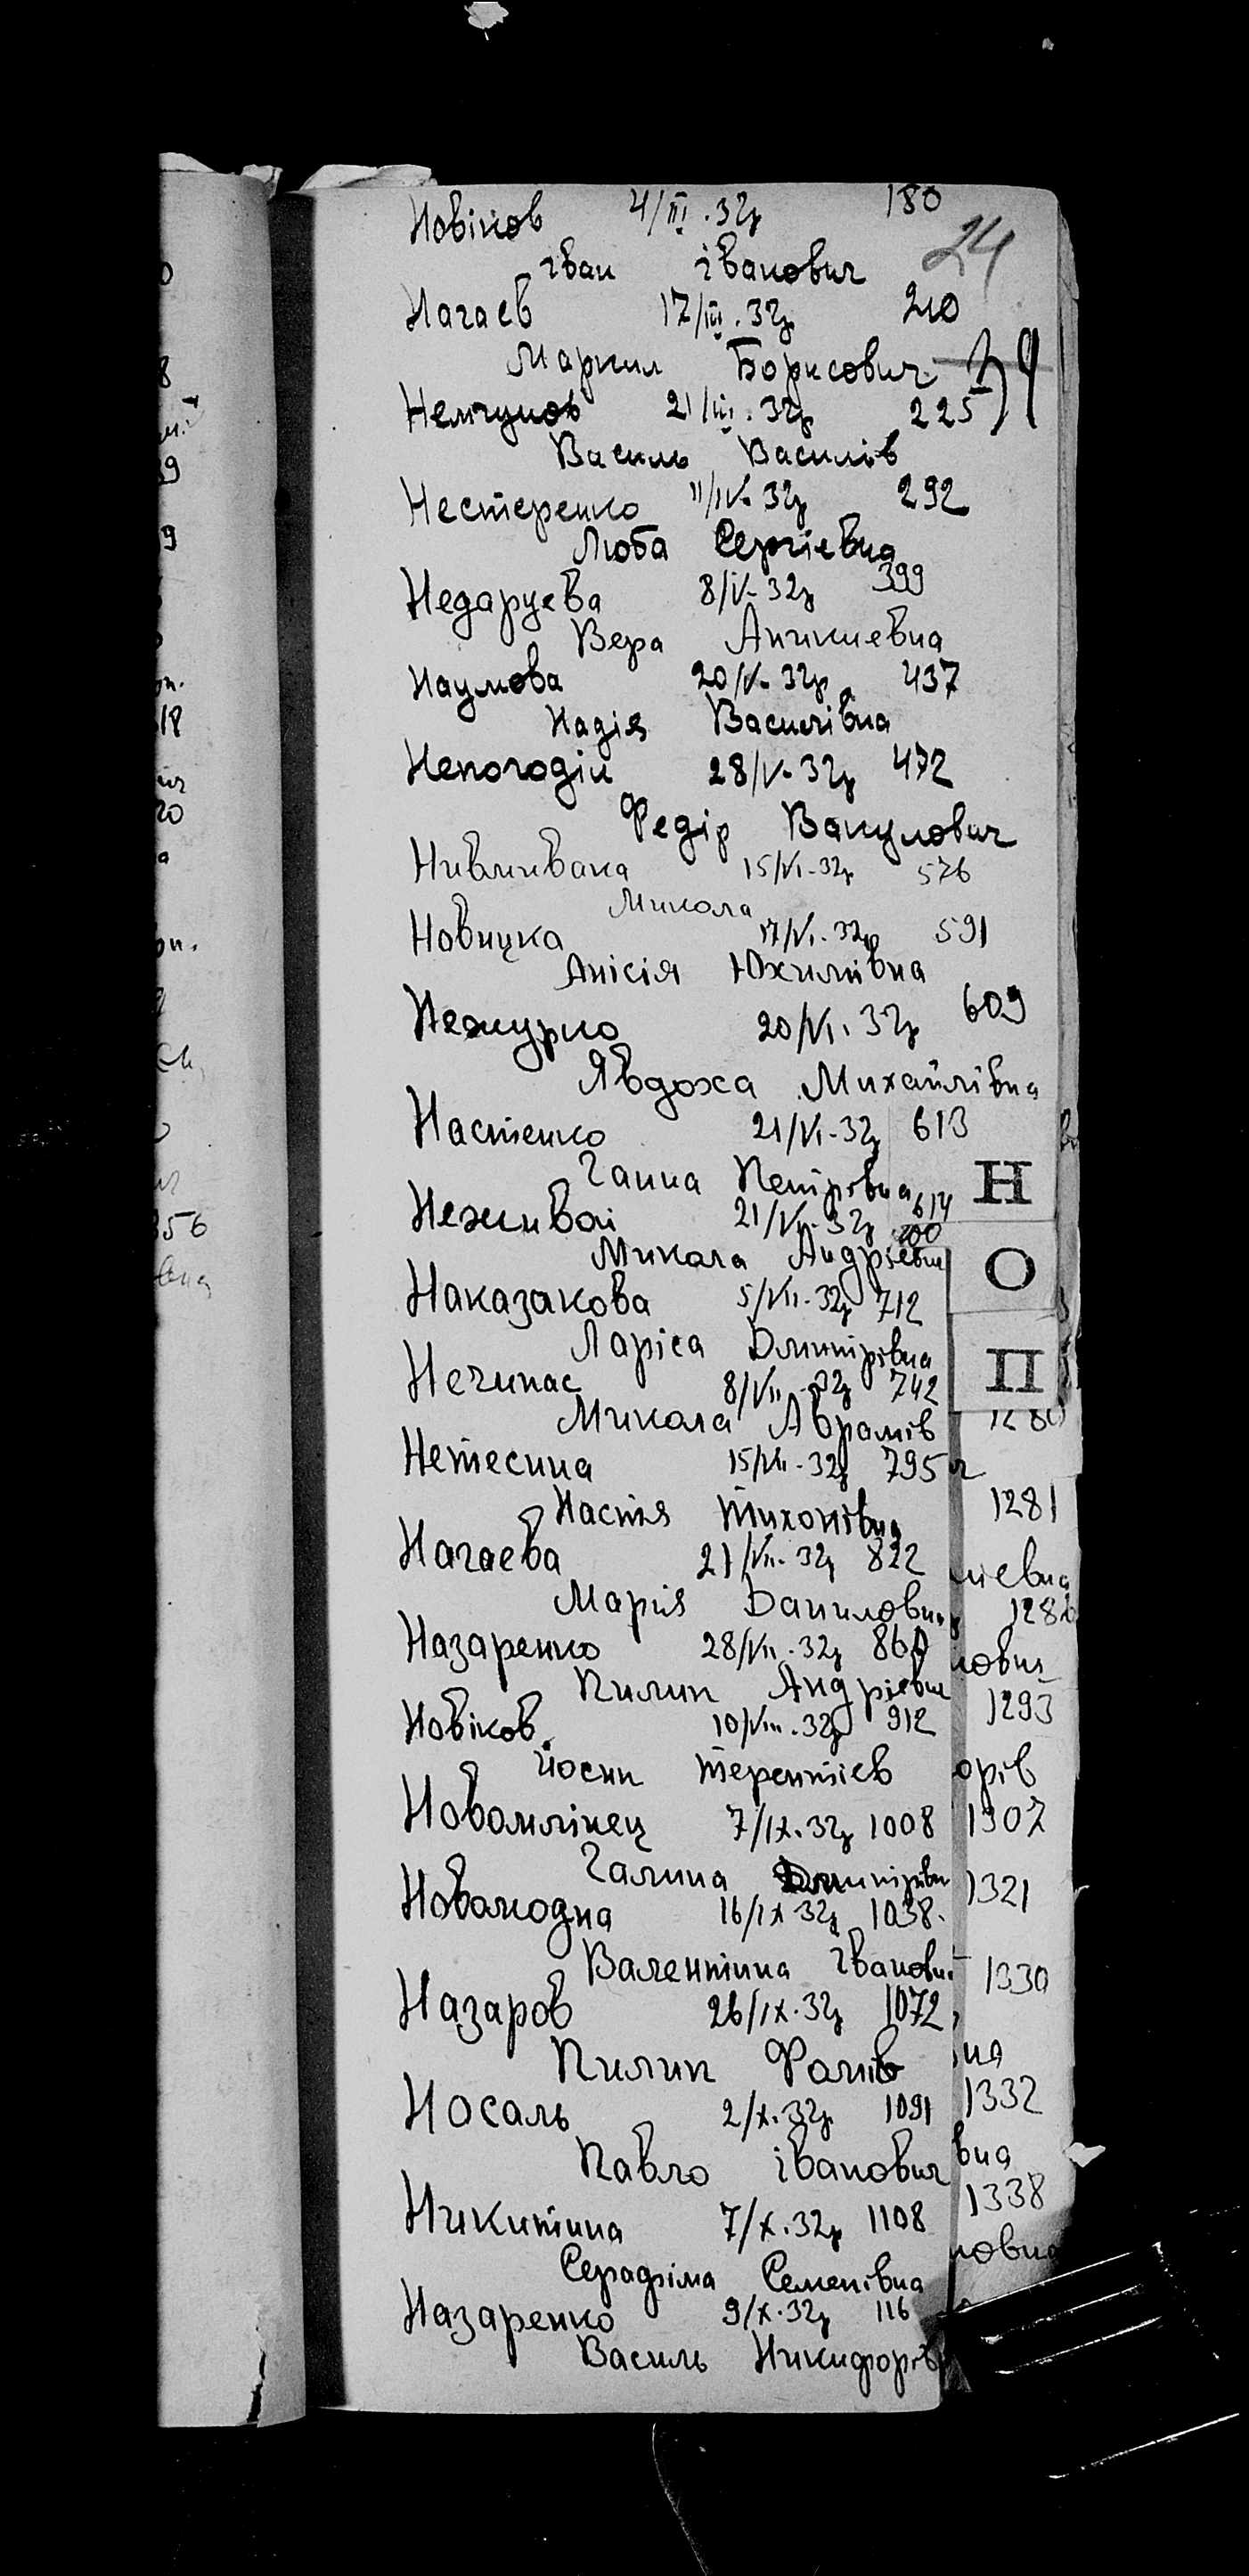 Новіков 4/III.32р 180
24
іван іванович
Нагаєв 17/III.32р 210
Маркил Борисович 39
Немчунов 21/III.32р 225
Василь Василів
Нестеренко 11/IV-32р 292
Люба Сергієвна
Недаруєва 8/V-32р 399
Вера Аникиевна
Наумова 20/V-32р 437
Надія Василівна
Непогодін 28/V-32р 472
Федір Вакулович
Нивливака 15/VI-32р 576
Микола
Новицка 17/VI-32р 591
Анісія Юхимівна
Нежурко 20/VI.32р 609
Явдоха Михайлівна
Настенко 21/VI-32р 613
Ганна Петрівна
Неживой 21/VI-32р 614
Микола Андрієвич
Наказакова 5/VII-32р 712
Ларіса Дмитрівна
Нечипас 8/VII-32р 742
Микола Абрамів
Нетесина 15/VII-32р 795
Настія Тихонівна
Нагаева 21/VII-32р 822
Марія Даниловна
Назаренко 28/VII-32р 860
Пилип Андрієвич
Новіков 10/VIII-32р 912
Йосип Терентієв
Новомлінец 7/IX.32р 1008
Галина Дмитрівн
Новоходна 16/IX-32р 1038.
Валентина Івановн
Назаров 26/IX.32р 1072
Пилип Фомів
Носаль 2/X.32р. 1091
Павло іванович
Никитина 7/X.32р 1108
Серафіма Семенівна
Назаренко 9/X.32р 116
Василь Никифорів
Н
О
П
1280
1281
1293
1307
1321
1330
1332
1338